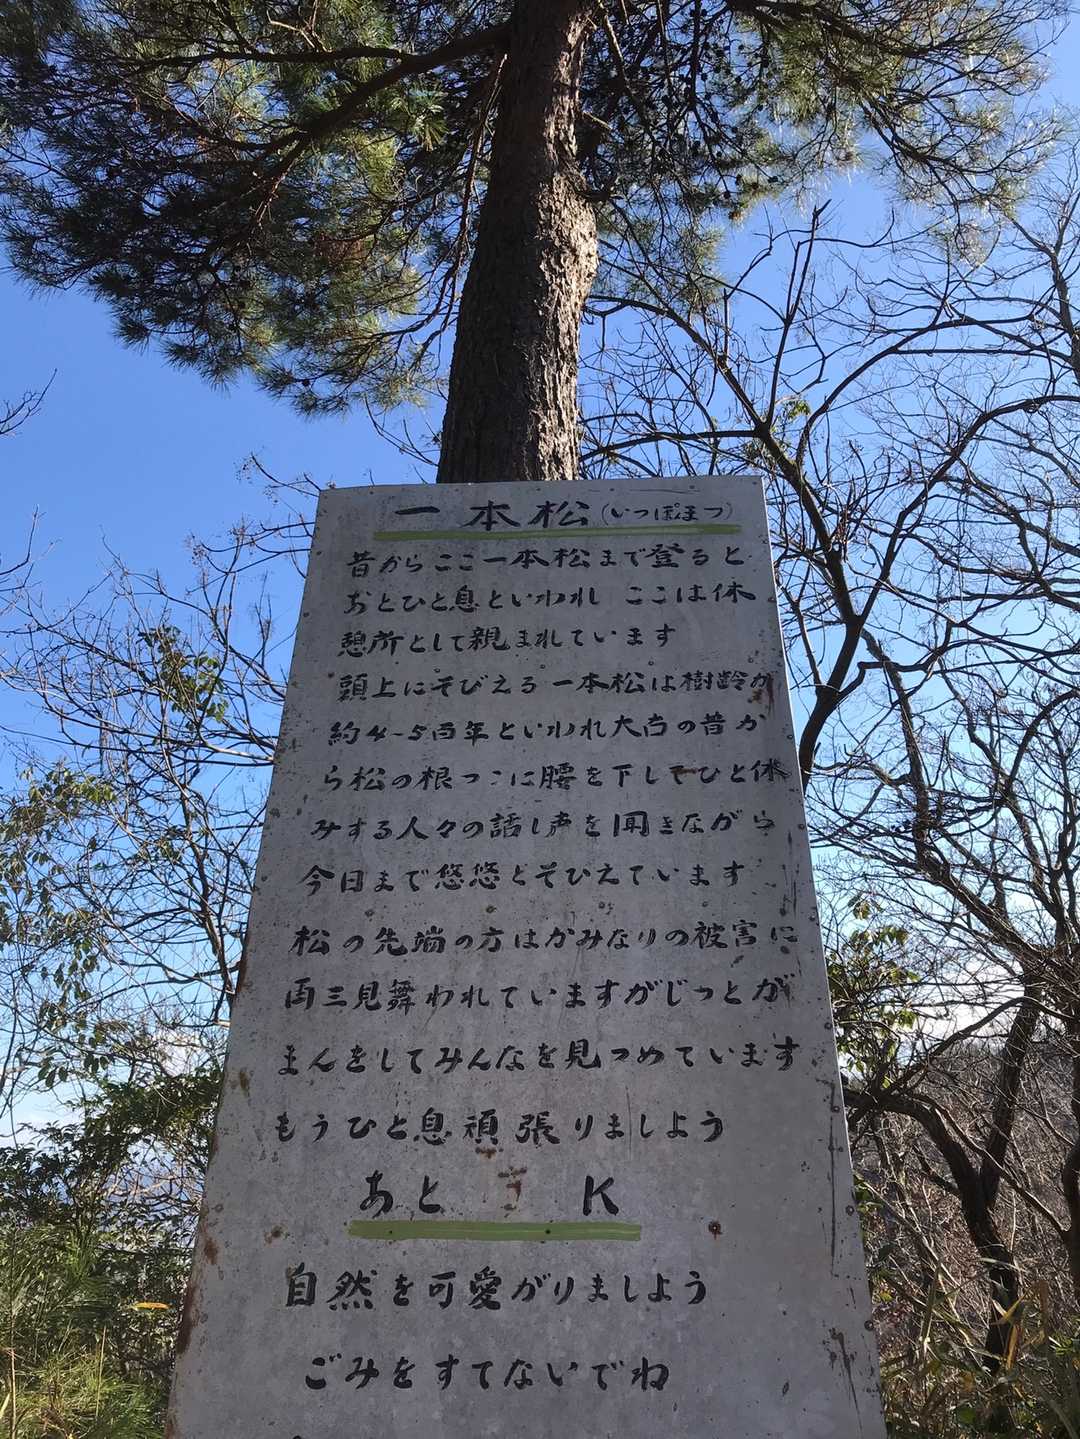 一本松(いっぽまつ)
昔からここ一本松まで登ると
あとひと息といわれ ここは休
憩所として親まれています
頭上にそびえる一本松は樹齢が
約4-5百年といわれ大古の昔か
ら松の根っこに腰を下してひと休
みする人々の話し声を聞きながら
今日まで悠悠とそびえています
松の先端の方はかみなりの被害に
両三見舞われていますがじっとが
まんをしてみんなを見つめています
もうひと息頑張りましよう
あと K
自然を可愛がりましよう
ごみをすてないでね